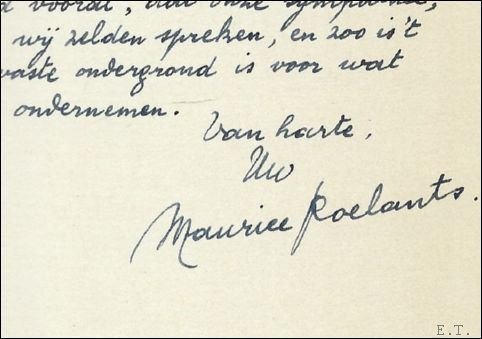 vooral, dat onze sympathie,
wij zelden spreken, en zoo is't
vaste ondergrond is voor wat
ondernemen.
Van harte,
Uw
Maurice Roelants.
E.T.